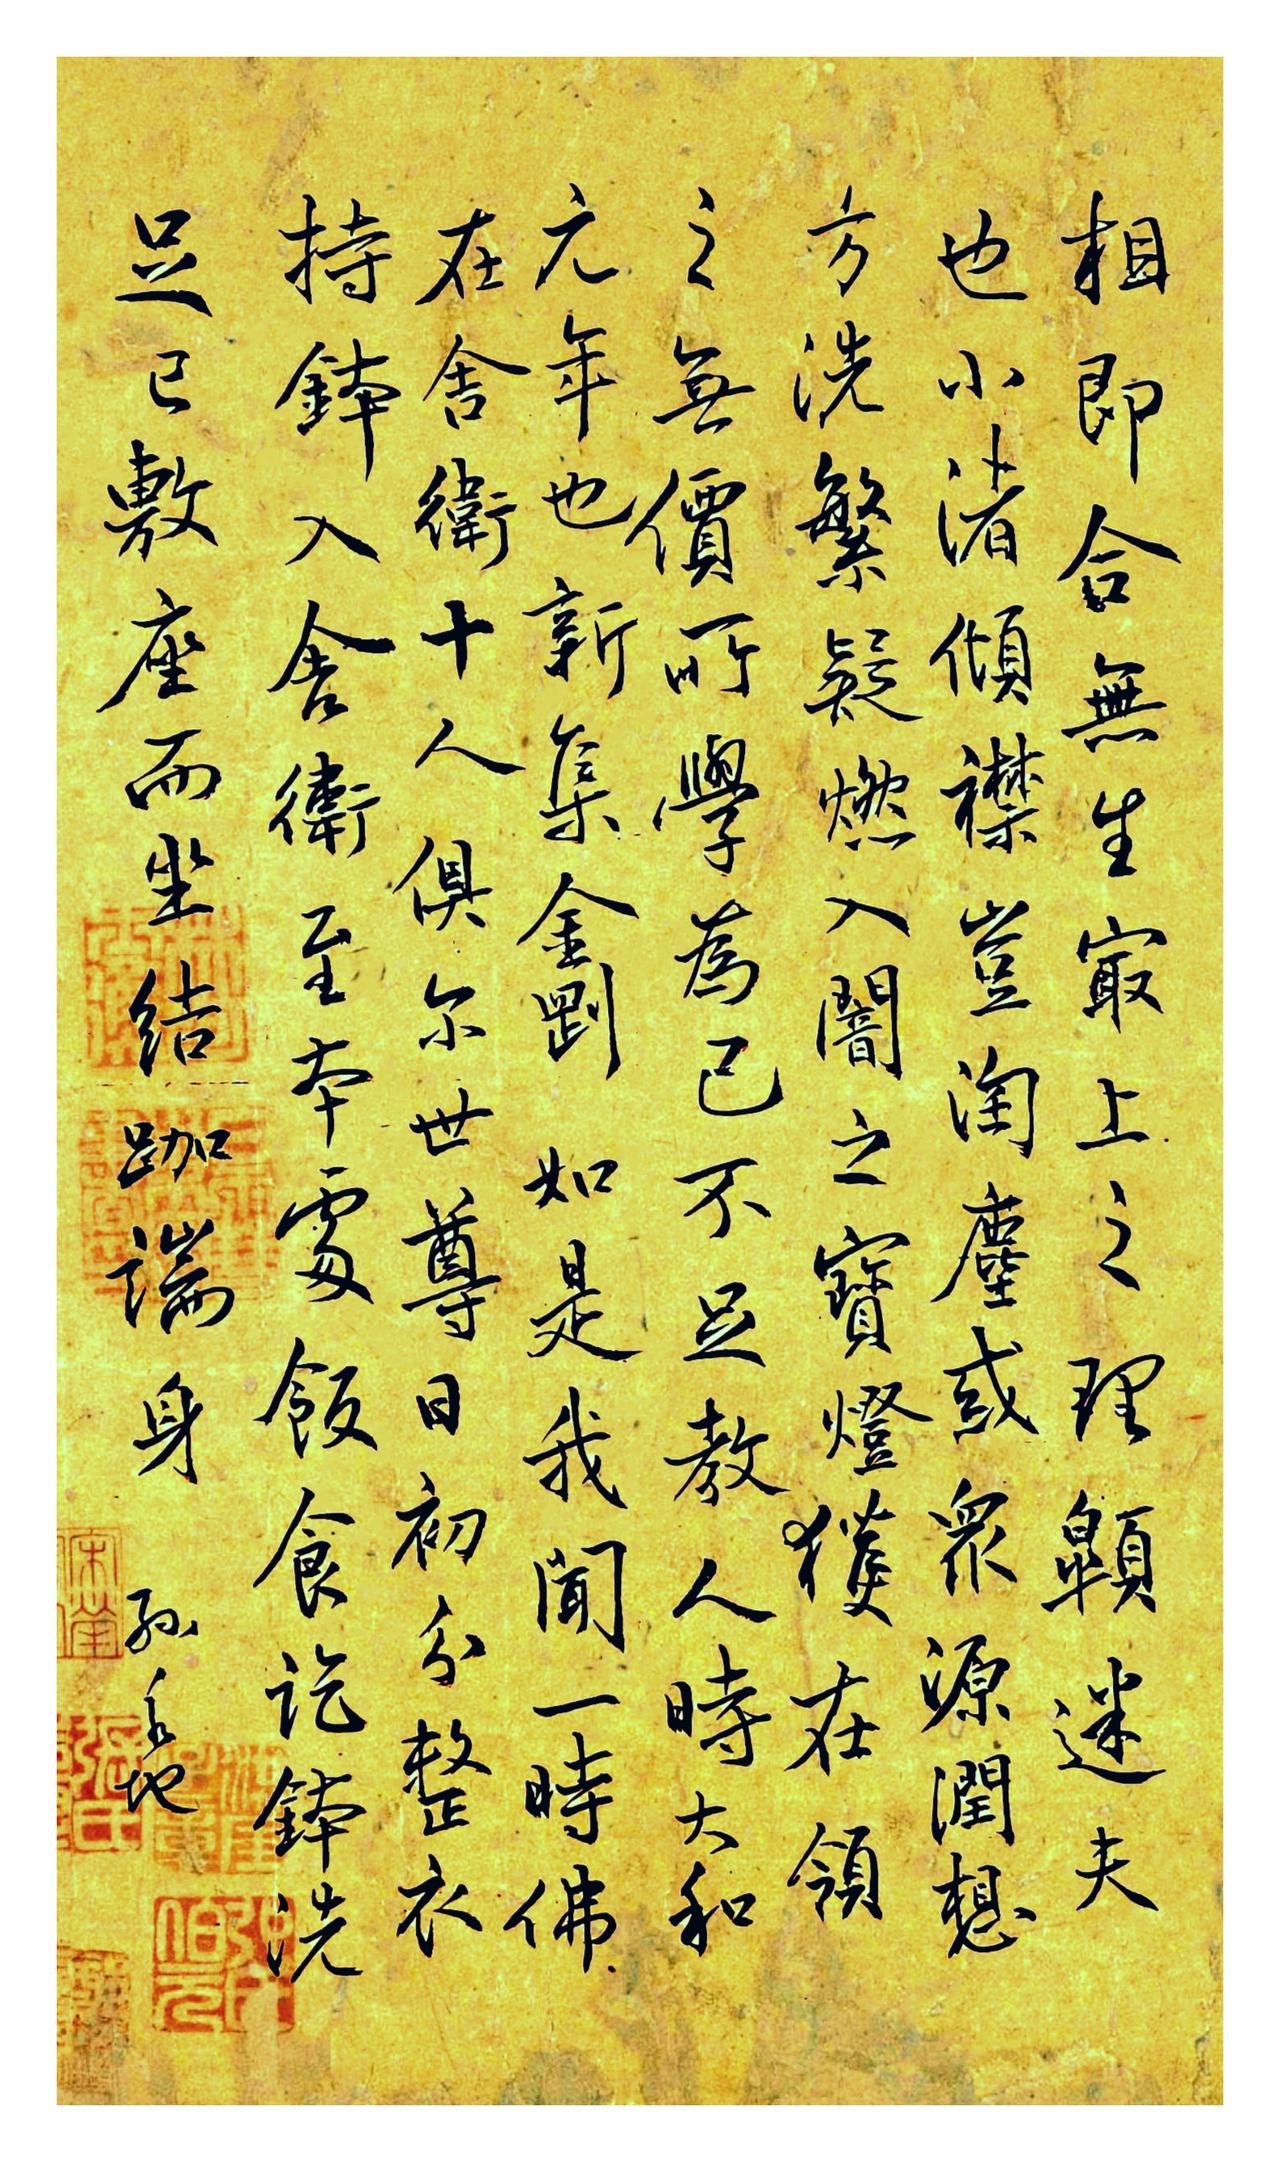 相即合無生冣上之理顛迷夫
也小渚傾襟豈淘塵或眾源潤想
方洗繁疑燃入闇之寶燈獲在領
之無價所學為己不足教人時大和
元年也新集金剛如是我聞一時佛
在舍衛十人俱尔世尊日初分整衣
持鉢入舍衛至本處飯食訖鉢洗
足已敷座而坐結跏端身
孫永地